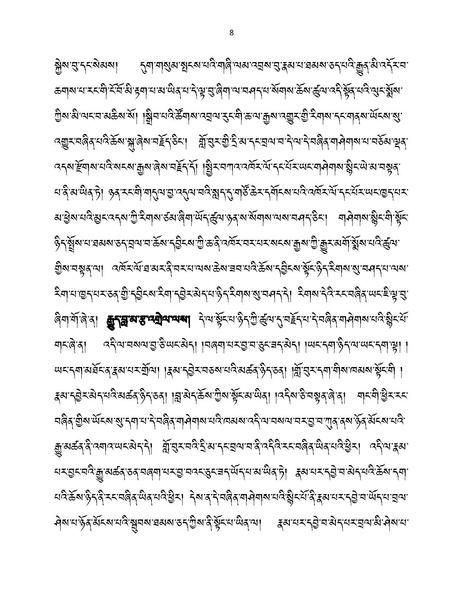 8
སྐྱེས་བུ་དང་སེམས། དུག་གསུམ་སྤངས་པའི་གཞི་ལམ་འབྲས་བུ་རྣམ་པ་ཐམས་ཅད་པའི་རྒྱུན་མི་འདོར་བ་
ཆགས་པ་རང་གི་ངོ་བོ་མི་རྟག་པ་མ་ཡིན་པ་དེ་ལྟ་བུ་ཞིག་ལ་བཤད་པ་སོགས་ཆོས་ཚུལ་འདི་སྟོན་པའི་ལུང་སྨོས་
ཀྱིས་མི་ལང་བ་མཆིས་སོ། །སྒྲིབ་པའི་ཚོགས་འབྲལ་རུང་གི་ཆ་ལ་རྒྱས་འགྱུར་གྱི་རིགས་དང་གནས་ཡོངས་སུ་
འགྱུར་བཞིན་པའི་ཆོས་སྐུ་ཞེས་བརྗོད་ཅིང་། གློ་བུར་གྱི་དྲི་མ་དང་བྲལ་བ་དེ་ལ་དེ་བཞིན་གཤེགས་པ་བཅོམ་ལྡན་
འདས་རྫོགས་པའི་སངས་རྒྱས་ཞེས་བརྗོད་དོ། །སྤྱིར་བཀའ་འཁོར་ལོ་དང་པོར་ཡང་གཤེགས་སྙིང་ཡེ་མ་བསྟན་
པ་ནི་མ་ཡིན་ཏེ། ཉན་རང་གི་གདུལ་བྱ་འདུལ་བའི་སླད་དུ་གཙོ་ཆེར་དགོངས་པའི་འཁོར་ལོ་དང་པོར་ཡང་ཁྱད་པར་
མ་ཕྱེས་པའི་མྱང་འདས་ཀྱི་རིགས་ཙམ་ཞིག་ཡོད་ཚུལ་ཉན་ས་སོགས་ལས་བཤད་ཅིང་། གཤེགས་སྙིང་གི་སྟོང་
ཉིད་སྤྲོས་པ་ཐམས་ཅད་བྲལ་བ་ཆོས་དབྱིངས་ཀྱི་ཆ་ནི་འཁོར་བར་པར་སངས་རྒྱས་ཀྱི་རྒྱུར་མགོ་སྨོས་པའི་ཚུལ་
གྱིས་བསྟན་ལ། འཁོར་ལོ་ཐ་མར་ནི་བར་པ་ལས་ཆེས་ཟབ་པའི་ཆོས་དབྱིངས་སྟོང་ཉིད་རིགས་སུ་བཤད་པ་ལས་
རིག་པ་ཁྱད་པར་ཅན་གྱི་དབྱིངས་རིག་དབྱེར་མེད་པ་ཉིད་རིགས་སུ་བཤད་དེ། རིགས་དེའི་རང་བཞིན་ཡང་ཇི་ལྟ་བུ་
ཞིག་གོ་ཞེ་ན། རྒྱུད་བླ་མ་རྩ་འགྲེལ་ལས། དེ་ལ་སྟོང་པ་ཉིད་ཀྱི་ཚུལ་དུ་བརྗོད་པ་དེ་བཞིན་གཤེགས་པའི་སྙིང་པོ་
གང་ཞེ་ན། འདི་ལ་བསལ་བྱ་ཅི་ཡང་མེད། །བཞག་པར་བྱ་བ་ཅུང་ཟད་མེད། །ཡང་དག་ཉིད་ལ་ཡང་དག་ལྟ། །
ཡང་དག་མཐོང་ན་རྣམ་པར་གྲོལ། །རྣམ་དབྱེར་བཅས་པའི་མཚན་ཉིད་ཅན། །གློ་བུར་དག་གིས་ཁམས་སྟོང་གི །
རྣམ་དབྱེར་མེད་པའི་མཚན་ཉིད་ཅན། །བླ་མེད་ཆོས་ཀྱིས་སྟོང་མ་ཡིན། །འདིས་ཅི་བསྟན་ཞེ་ན། གང་གི་ཕྱིར་རང་
བཞིན་གྱིས་ཡོངས་སུ་དག་པ་དེ་བཞིན་གཤེགས་པའི་ཁམས་འདི་ལ་བསལ་བར་བྱ་བ་ཀུན་ནས་ཉོན་མོངས་པའི་
རྒྱུ་མཚན་ནི་འགའ་ཡང་མེད་དེ། གློ་བུར་བའི་དྲི་མ་དང་བྲལ་བ་ནི་འདིའི་རང་བཞིན་ཡིན་པའི་ཕྱིར། འདི་ལ་རྣམ་
པར་བྱང་བའི་རྒྱུ་མཚན་ཅན་བཞག་པར་བྱ་བའང་ཅུང་ཟད་ཡོད་པ་མ་ཡིན་ཏེ། རྣམ་པར་དབྱེ་བ་མེད་པའི་ཆོས་དག་
པའི་ཆོས་ཉིད་ནི་རང་བཞིན་ཡིན་པའི་ཕྱིར། དེས་ན་དེ་བཞིན་གཤེགས་པའི་སྙིང་པོ་ནི་རྣམ་པར་དབྱེ་བ་ཡོད་པ་བྲལ་
ཤེས་པ་ཉོན་མོངས་པའི་སྦུབས་ཐམས་ཅད་ཀྱིས་ནི་སྟོང་པ་ཡིན་ལ། རྣམ་པར་དབྱེ་བ་མེད་པར་བྲལ་མི་ཤེས་པ་